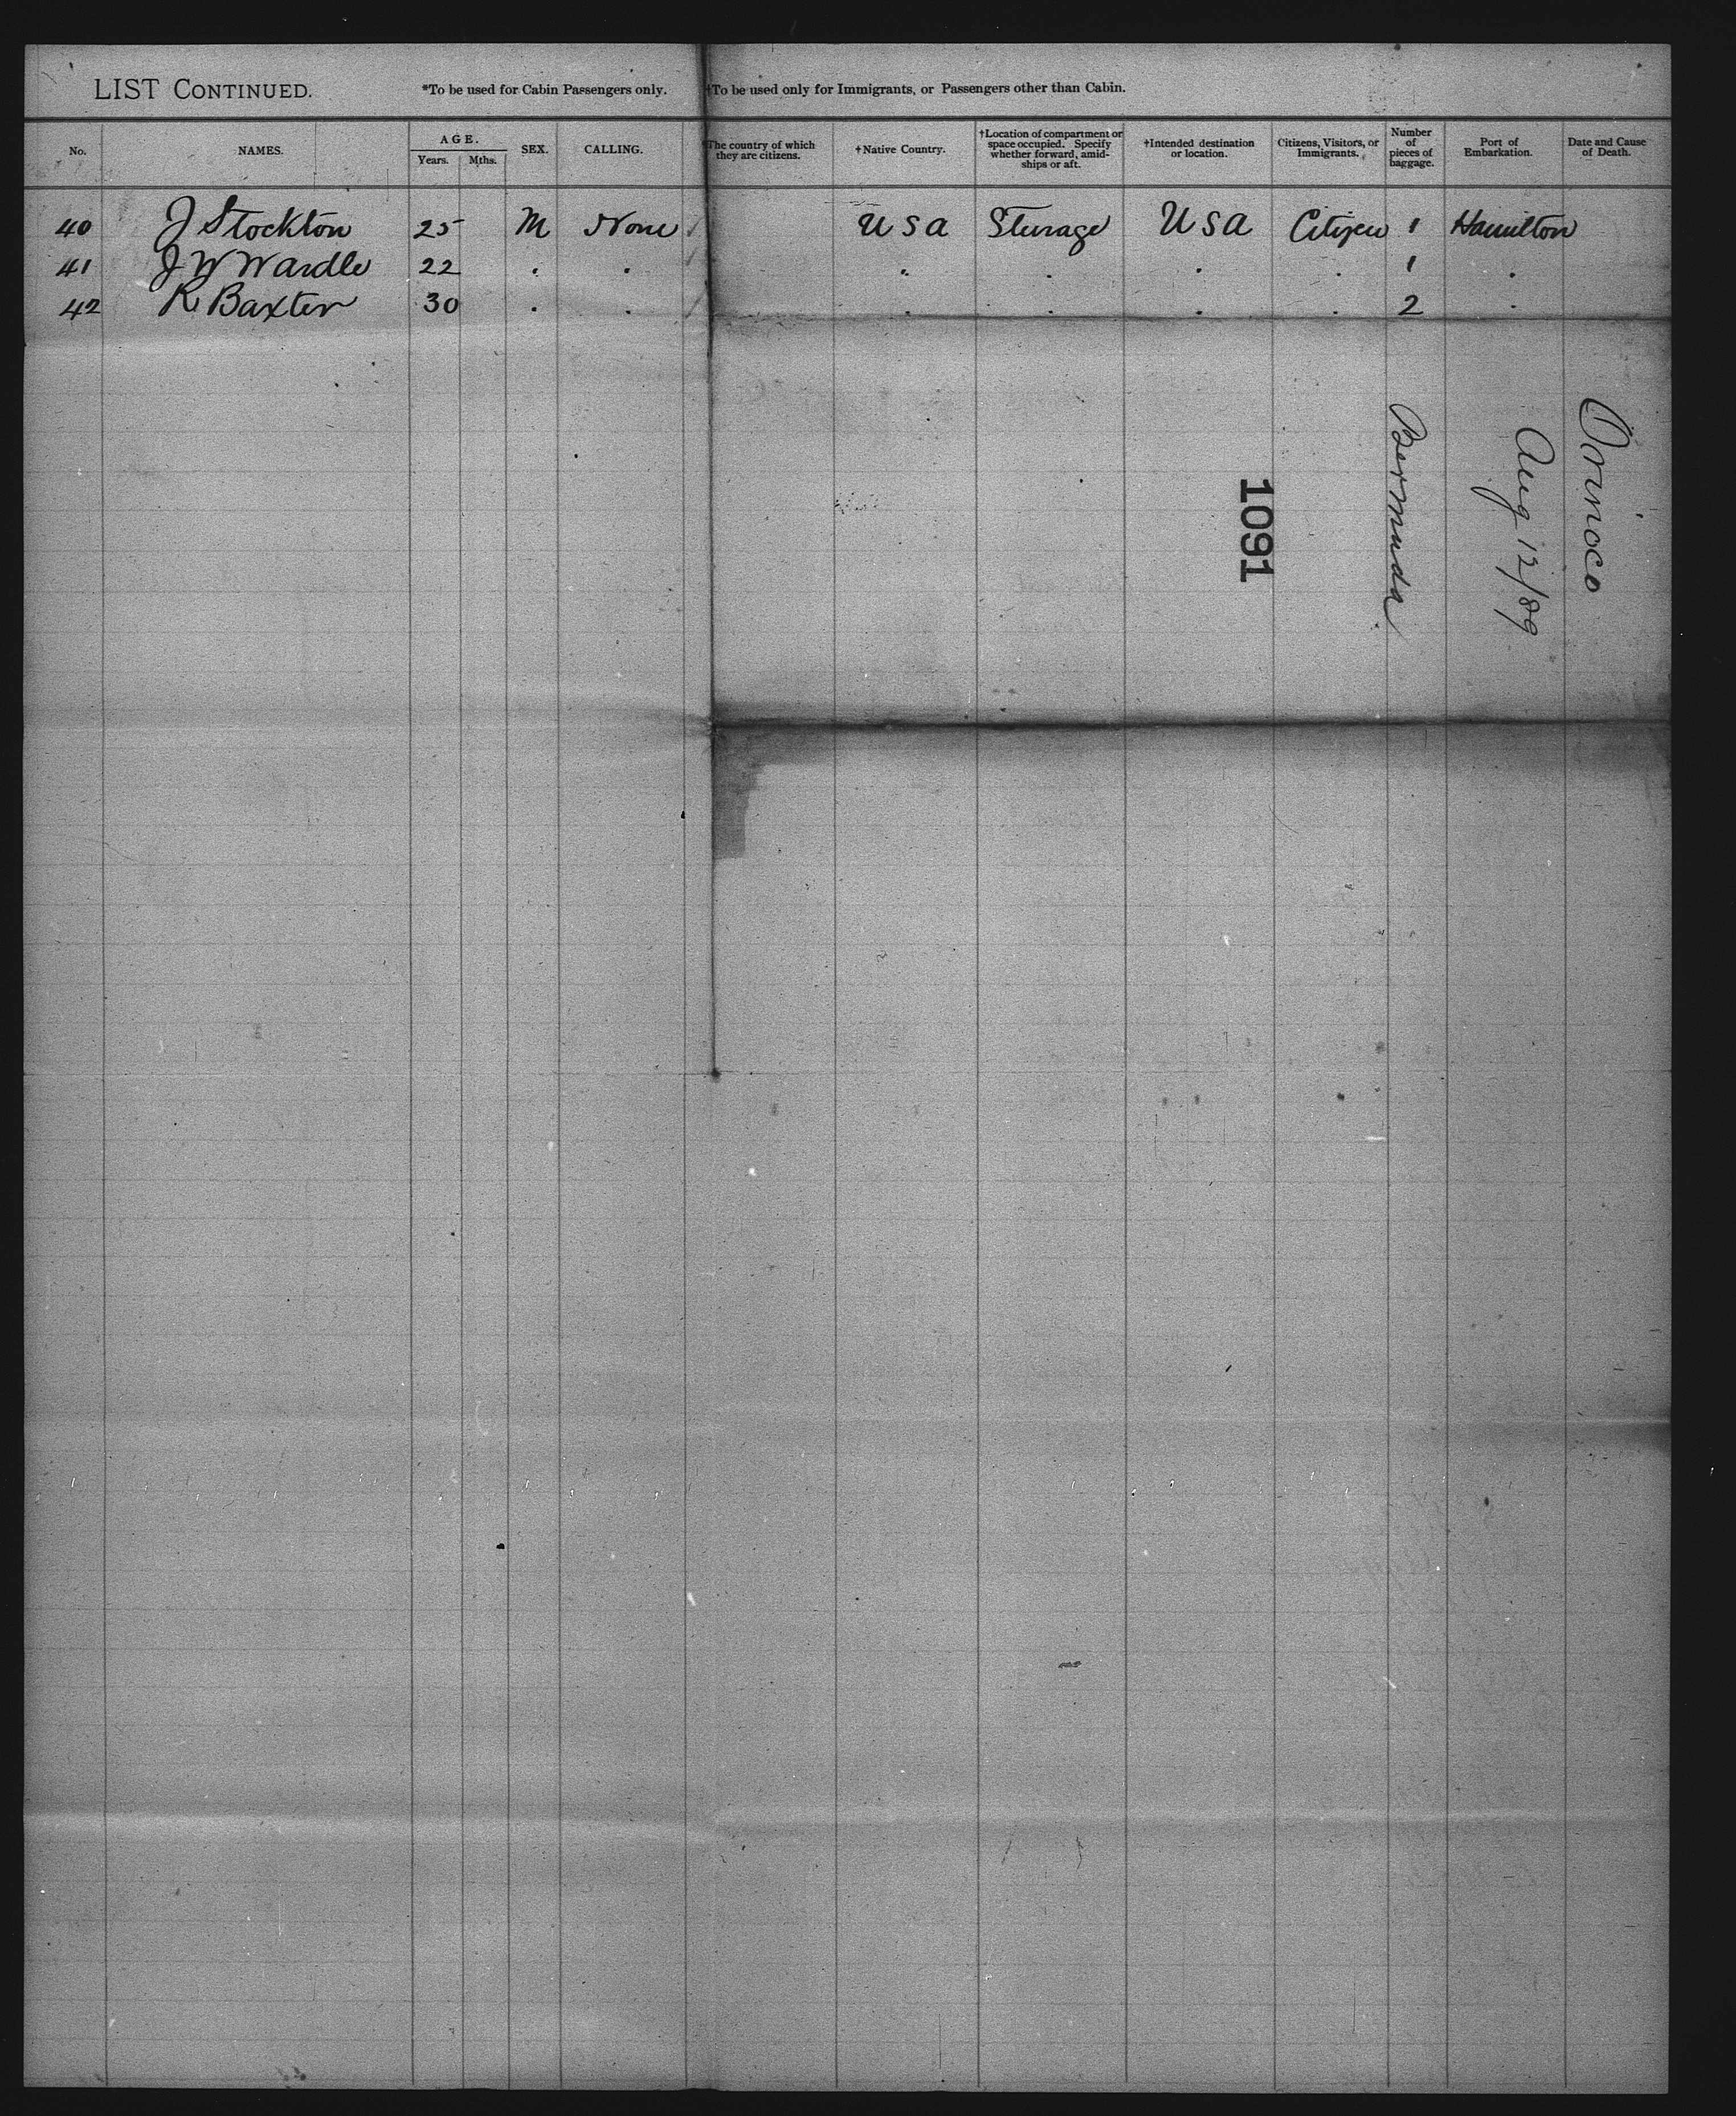 LIST CONTINUED. *To be used for Cabin Passengers only. †To be used only for Immigrants, or Passengers other than Cabin.
No. NAMES. AGE. Years. Mths. SEX. CALLING. The country of which they are citizens. †Native Country. †Location of compartment or space occupied. Specify whether forward, amid-ships or aft. †Intended destination or location. Citizens, Visitors, or Immigrants. Number of pieces of baggage. Port of Embarkation. Date and Cause of Death.
40 J Stockton 25 M None / USA Sturage USA Citizen 1 Hamilton
41 J W Wardle 22 . . . . . . 1 .
42 R Baxter 30 . . / . . . . 2 .
Orinoco
Aug 12/89
Bermuda
1091